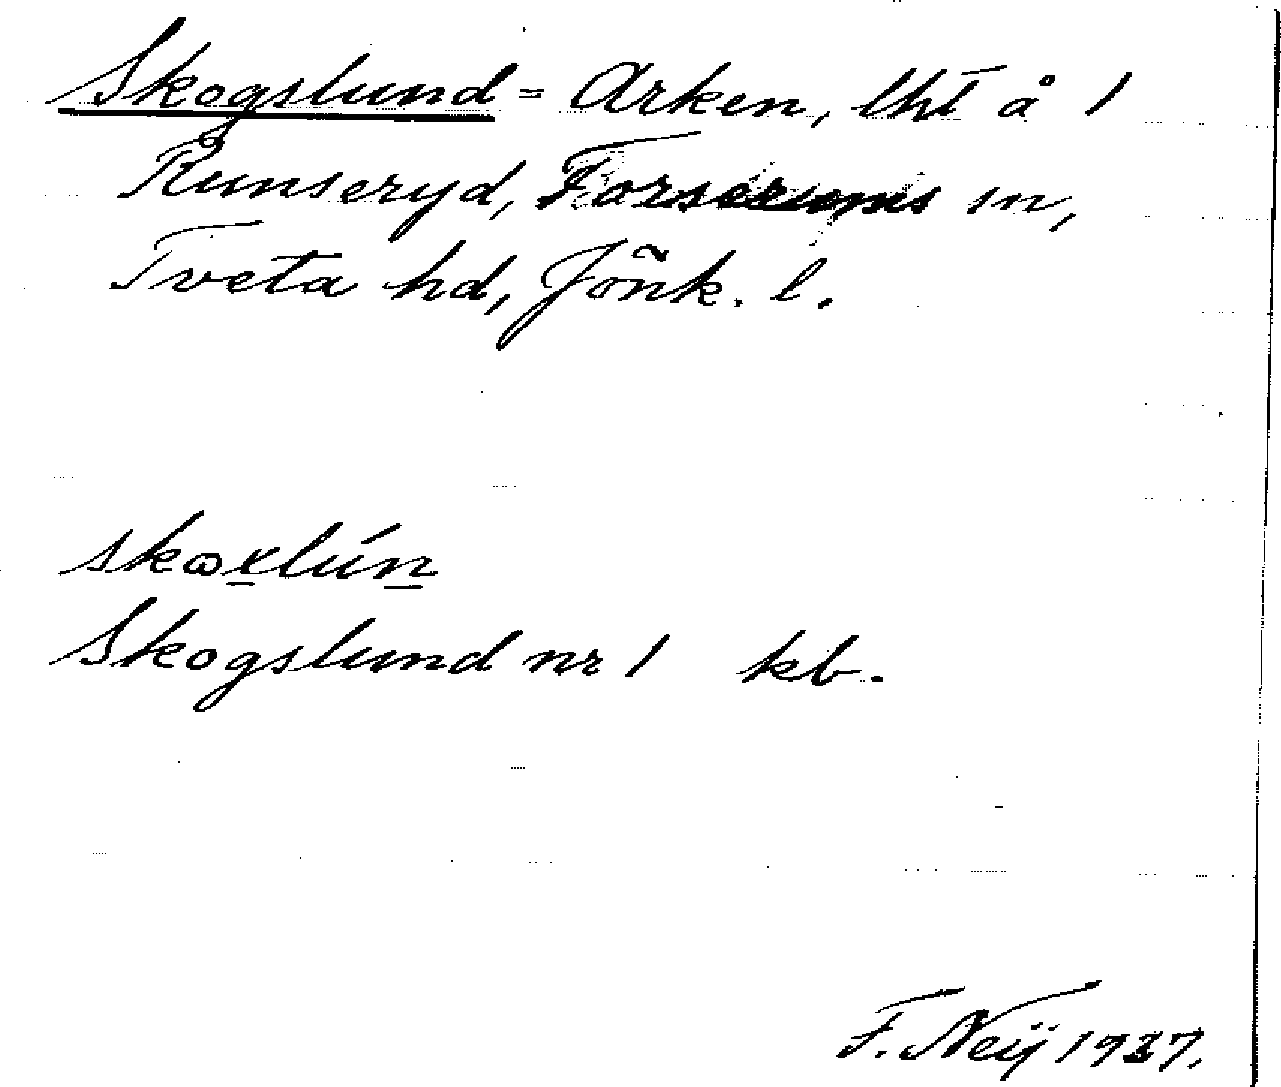 Skogslund = Arken, lht å 1
Runseryd, Forserums sn,
Tveta hd, Jönk. l.
skωxlún
Skogslund nr 1 kb.
F. Neij 1937.